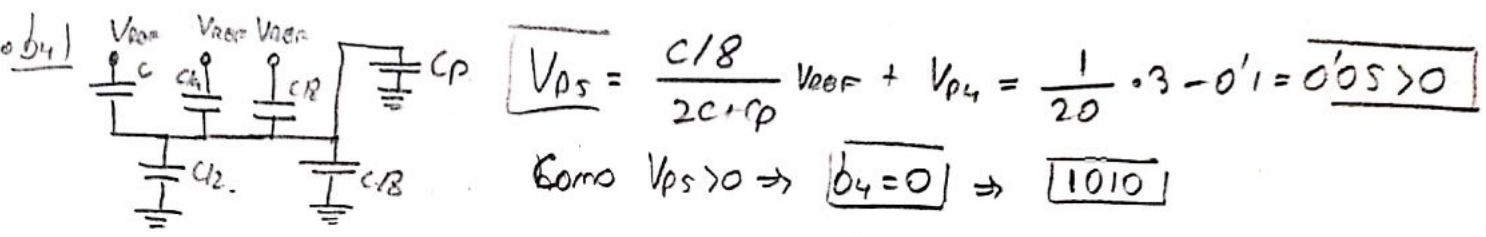 • b4|
VREF VREF VREF
C C/4 C/8 CP
C/2. C/8
VP5 = C/8 / 2C+CP VREF + VP4 = 1/20 · 3 - 0'1 = 0'05 > 0
Como VP5 > 0 ⇒ b4 = 0 ⇒ 1010